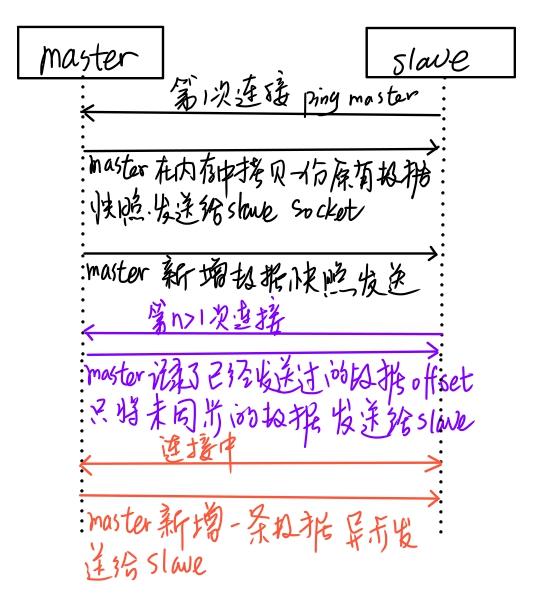 master
slave
第1次连接 ping master
master 在内存中拷贝一份原有数据
快照.发送给slave socket
master 新增数据快照发送
第n>1次连接
master记录了已经发送过的数据offset
只将未同步的数据发送给slave
连接中
master新增一条数据 异步发
送给 slave